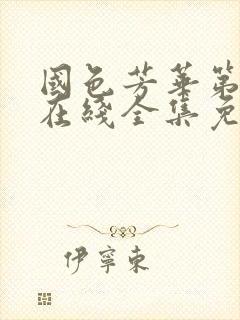 國色芳華第
在綫全集免
伊寧東